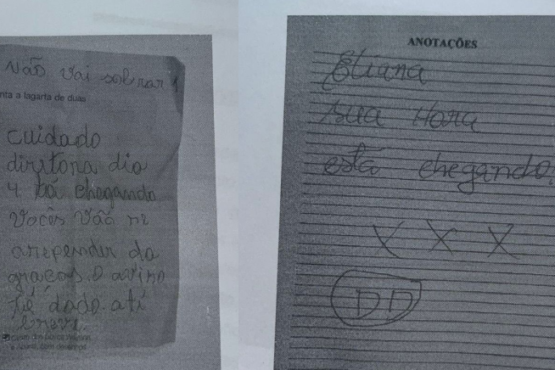 não vai sobrar 1
nta a lagarta de duas
cuidado
diretora dia
4 ta chegando
vocês vão se
arrepender da
graças o aviso
fé dado até
breve
ANOTAÇÕES
Eliana
sua Hora
está chegando
X X X
DD